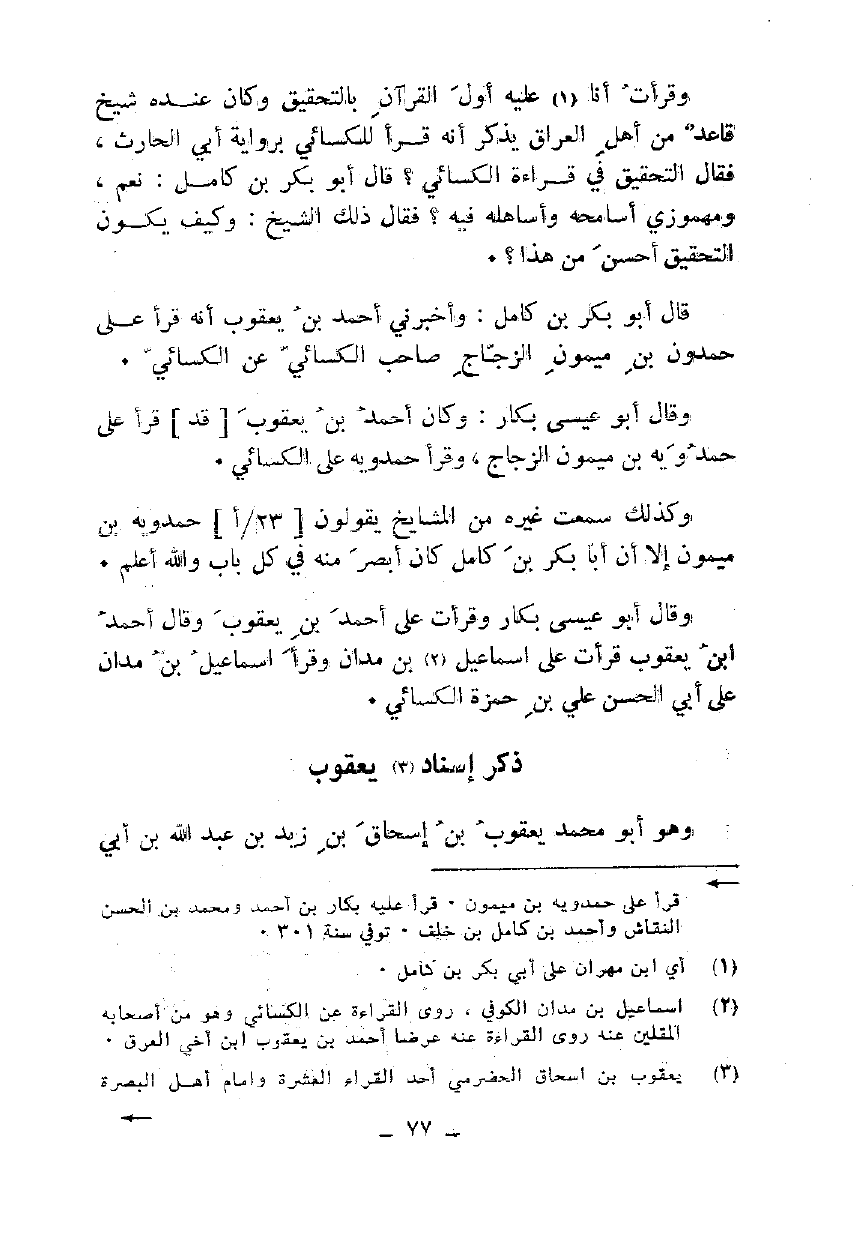 وقرأتُ أنا (١) عليه أولَ القرآنِ بالتحقيق وكان عنـــده شيخ
قاعدٌ من أهلِ العراق يذكر أنه قــرأ للكسائي برواية أبي الحارث ،
فقال التحقيق في قــراءة الكسائي ؟ قال أبو بكر بن كامــل : نعم ،
ومهموزي أسامحه وأساهله فيه ؟ فقال ذلك الشيخ : وكيف يكــون
التحقيق أحسنَ من هذا ؟ ٠
قال أبو بكر بن كامل : وأخبرني أحمد بنُ يعقوب أنه قرأ عــلى
حمدون بنِ ميمونِ الزجّاجِ صاحب الكسائيّ عن الكسائيّ ٠
وقال أبو عيسى بكار : وكان أحمدُ بنُ يعقوبَ [ قد ] قرأ على
حمدُوَيه بن ميمون الزجاج ، وقرأ حمدويه على الكسائي ٠
وكذلك سمعت غيره من المشايخ يقولون [ ٢٣/أ ] حمدويه بن
ميمون إلا أن أبا بكر بنَ كامل كان أبصرَ منه في كل باب والله أعلم ٠
وقال أبو عيسى بكار وقرأت على أحمدَ بنِ يعقوبَ وقال أحمدُ
ابنُ يعقوب قرأت على اسماعيل (٢) بن مدان وقرأَ اسماعيلُ بنُ مدان
على أبي الحسن علي بنِ حمزة الكسائي ٠
ذكر إسناد (٣) يعقوب
وهو أبو محمد يعقوبُ بنُ إسحاقَ بنِ زيد بن عبد الله بن أبي
←
قرأ على حمدويه بن ميمون ٠ قرأ عليه بكار بن أحمد ومحمد بن الحسن
النقاش وأحمد بن كامل بن خلف ٠ توفي سنة ٣٠١ ٠
(١) أي ابن مهران على أبي بكر بن كامل ٠
(٢) اسماعيل بن مدان الكوفي ، روى القراءة عن الكسائي وهو من أصحابه
المقلين عنه روى القراءة عنه عرضا أحمد بن يعقوب ابن أخي العرق ٠
(٣) يعقوب بن اسحاق الحضرمي أحد القراء العشرة وامام أهــل البصرة
←
– ٧٧ –